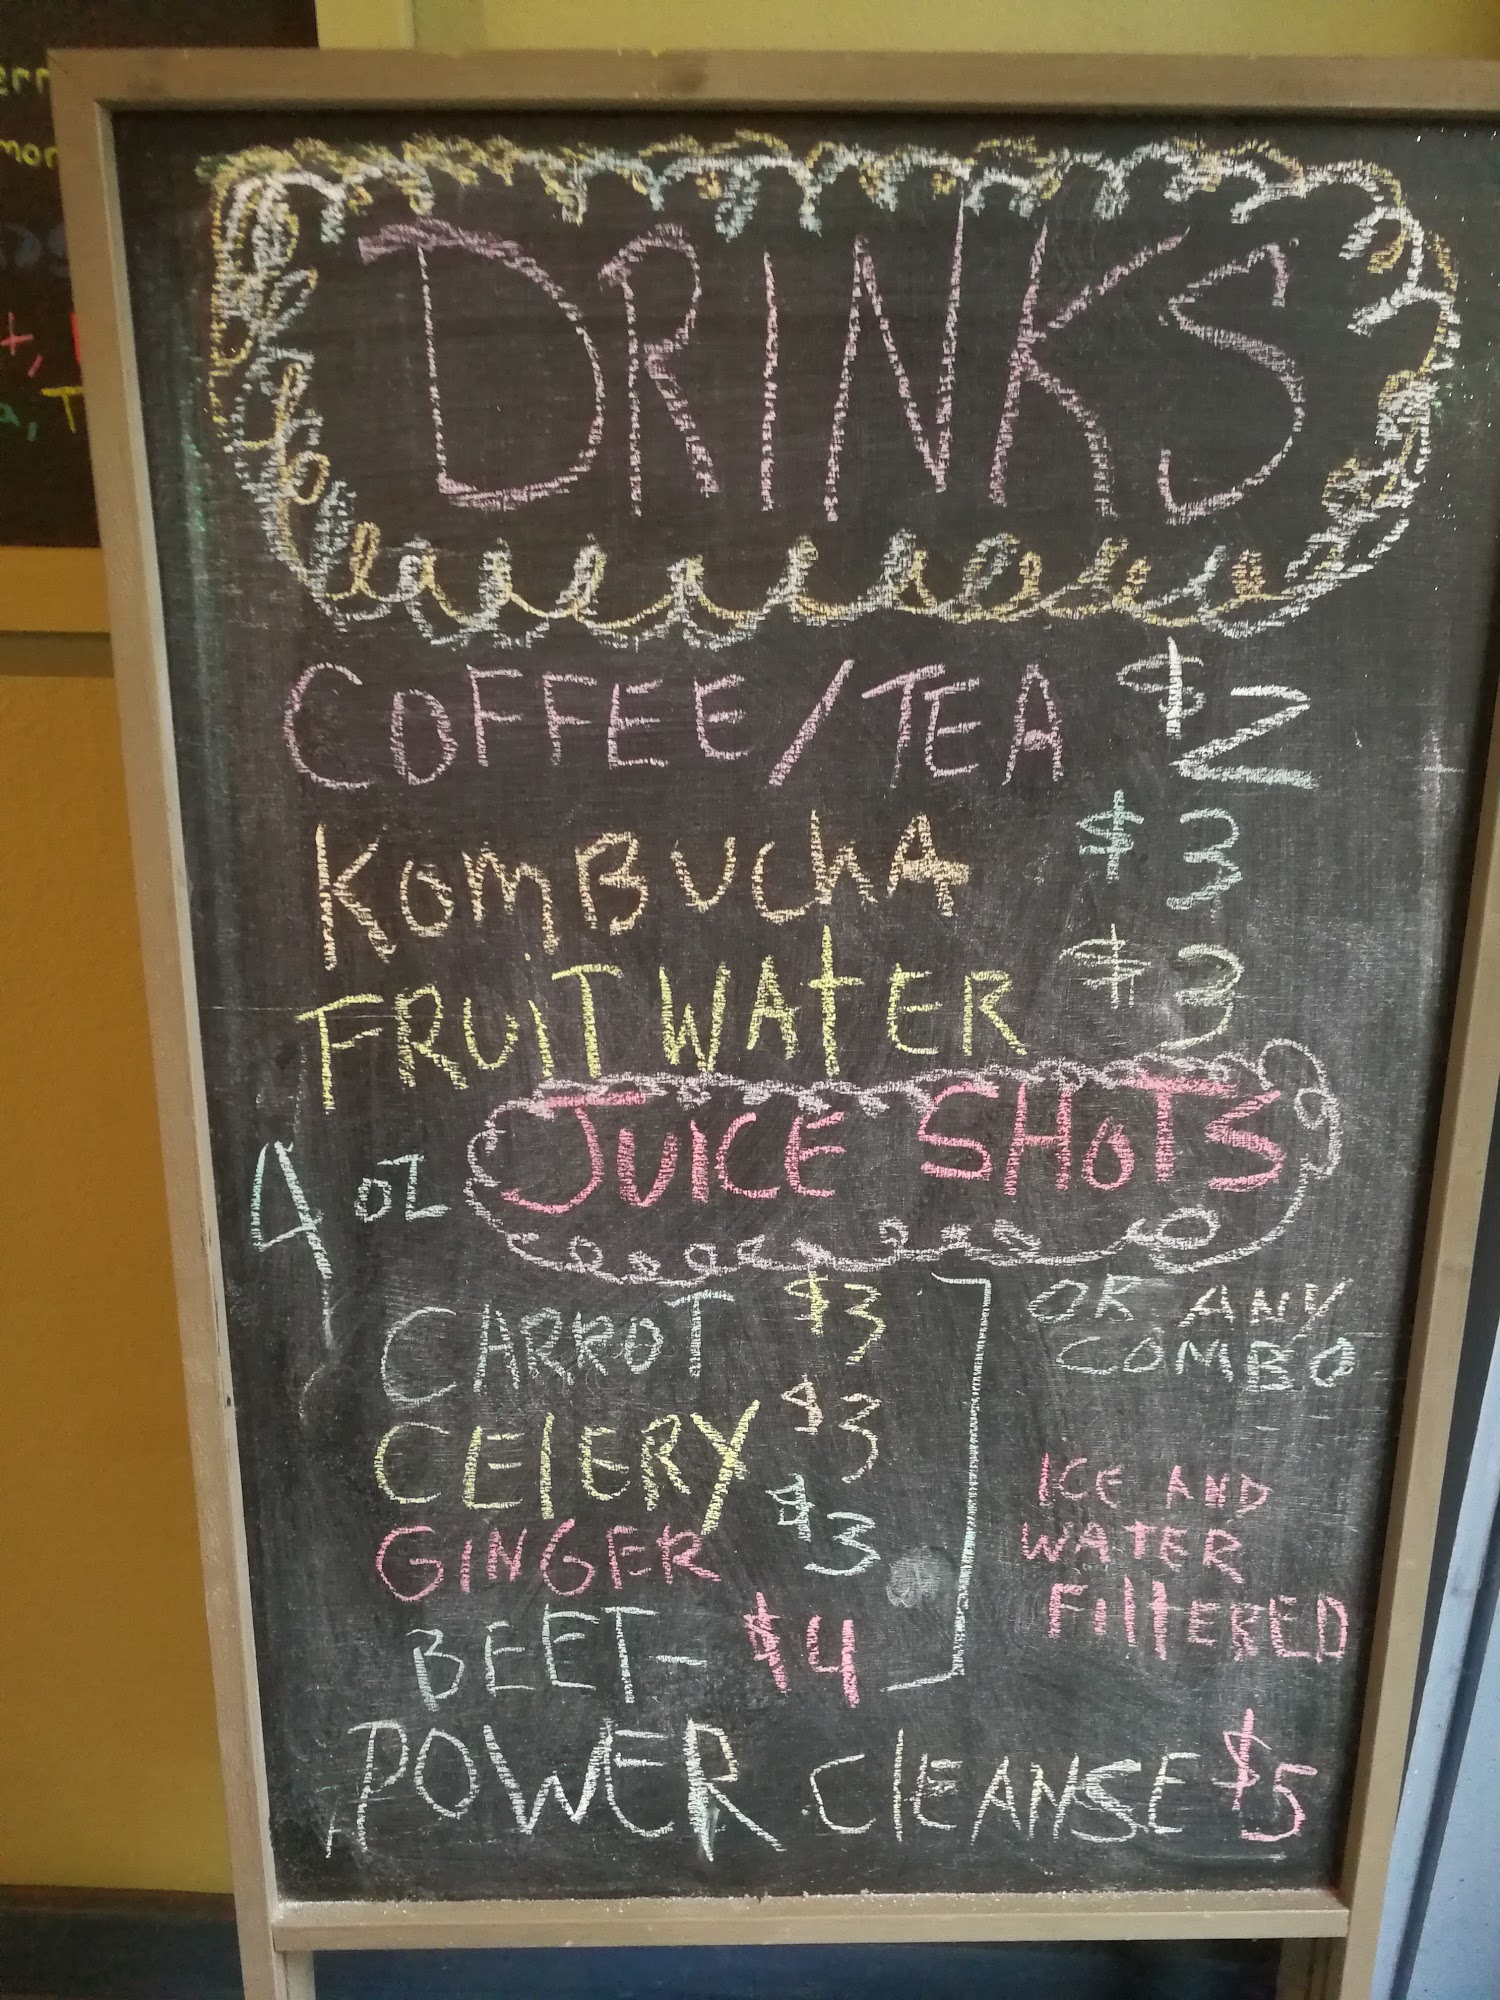 DRINKS
COFFEE/TEA $2
KOMBUCHA $3
FRUIT WATER $3
4 oz JUICE SHOTS
CARROT $3
OR ANY
COMBO
CELERY $3
GINGER $3
ICE AND
WATER
FILTERED
BEET- $4
POWER CLEANSE $5